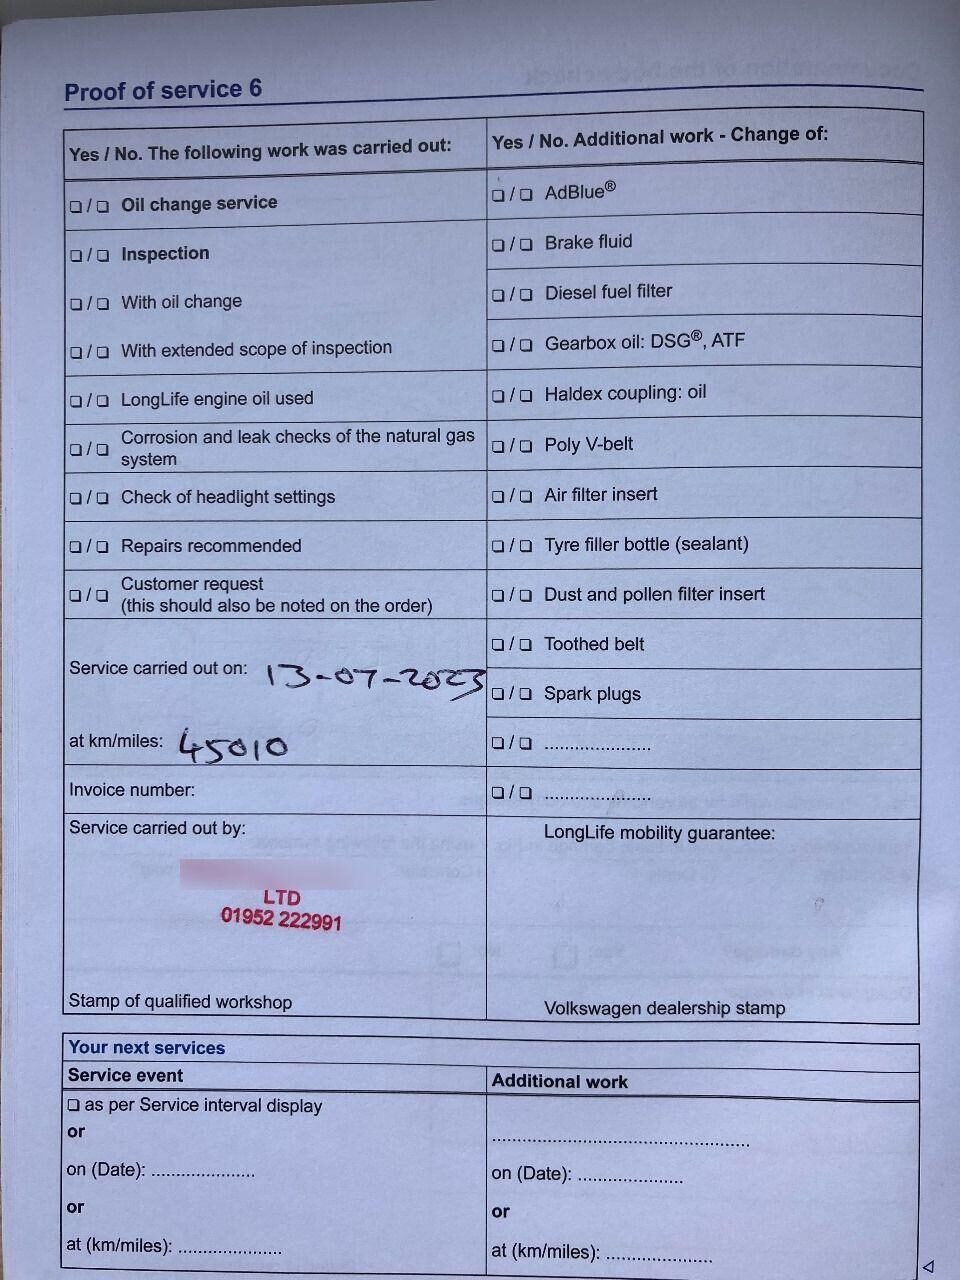 Proof of service 6
Yes / No. The following work was carried out:
❏ / ❏ Oil change service
❏ / ❏ Inspection
❏ / ❏ With oil change
❏ / ❏ With extended scope of inspection
❏ / ❏ LongLife engine oil used
❏ / ❏ Corrosion and leak checks of the natural gas
system
❏ / ❏ Check of headlight settings
❏ / ❏ Repairs recommended
❏ / ❏ Customer request
(this should also be noted on the order)
Service carried out on: 13-07-2023
at km/miles: 45010
Invoice number:
Service carried out by:
LTD
01952 222991
Stamp of qualified workshop
Yes / No. Additional work - Change of:
❏ / ❏ AdBlue®
❏ / ❏ Brake fluid
❏ / ❏ Diesel fuel filter
❏ / ❏ Gearbox oil: DSG®, ATF
❏ / ❏ Haldex coupling: oil
❏ / ❏ Poly V-belt
❏ / ❏ Air filter insert
❏ / ❏ Tyre filler bottle (sealant)
❏ / ❏ Dust and pollen filter insert
❏ / ❏ Toothed belt
❏ / ❏ Spark plugs
❏ / ❏ .....................
❏ / ❏ .....................
LongLife mobility guarantee:
Volkswagen dealership stamp
Your next services
Service event
❏ as per Service interval display
or
on (Date): ....................
or
at (km/miles): ....................
Additional work
..................................................
on (Date): ....................
or
at (km/miles): ....................